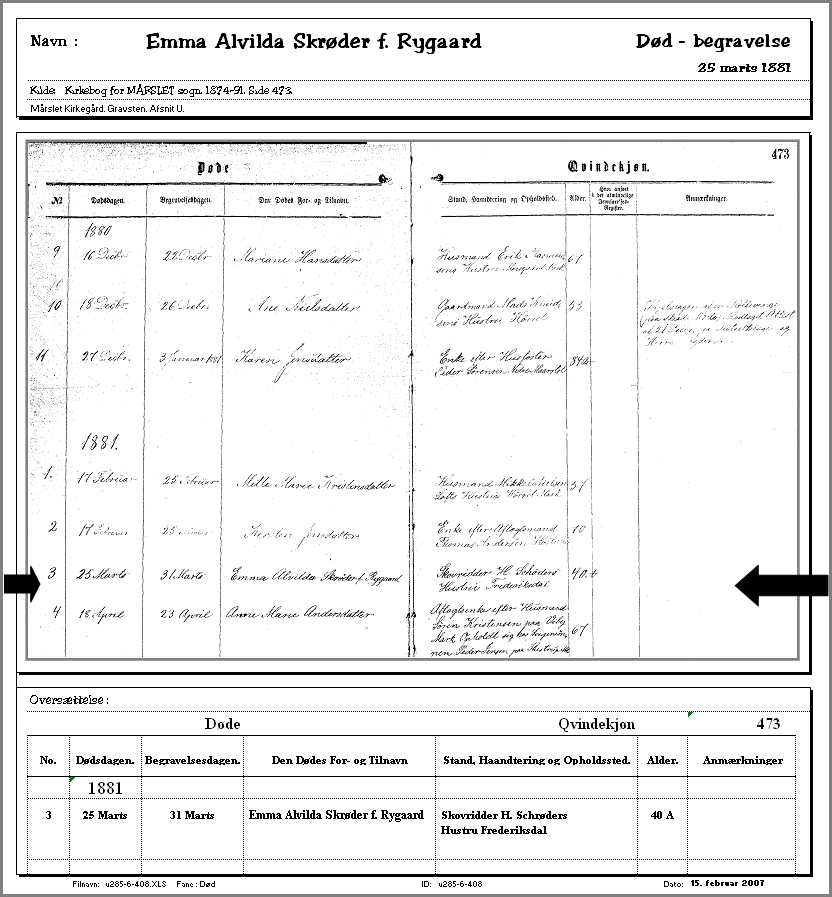 Navn :
Emma Alvilda Skrøder f. Rygaard
Død - begravelse
25 marts 1881
Kilde Kirkebog for MÅRSLET sogn. 1874-91. Side 473.
Mårslet Kirkegård. Gravsten. Afsnit U.
473
Døde Qvindekjøn.
№ Dødsdagen. Begravelsesdagen. Den Dødes For- og Tilnavn. Stand, Haandtering og Opholdssted. Alder. Hvor anført i det almindelige Jevnførelses-Register. Anmærkninger.
1880
9 16 Decbr 22 Decbr Mariane Hansdatter Husmand Erik 61
10
10 18 Decbr. 26 Decbr. Ane Nielsdatter Gaardmand Mads 53
Hustru
11 27 Decbr. 3 Januar 1881 Karen Jensdatter Enke efter Husfoster 84
Peder Sørensen
1881.
1. 17 Februar 25 Februar Mette Marie Kristensdatter Husmand 57
Hustru
2 17 25 Kersten Jensdatter Enke efter Aftægtsmand
Thomas Andersen
3 25 Marts 31 Marts Emma Alvilda Skrøder f. Rygaard Skovridder H. Schrøders 40.
Hustru Frederiksdal
4 18 April 23 April Anne Marie Andersdatter Aftægtsenke efter Husmand
Søren Kristensen paa Viby
Mark, Opholdt sig hos 67
Peder Jensen paa
Oversættelse :
Døde Qvindekjøn 473
No. Dødsdagen. Begravelsesdagen. Den Dødes For- og Tilnavn Stand, Haandtering og Opholdssted. Alder. Anmærkninger
1881
3 25 Marts 31 Marts Emma Alvilda Skrøder f. Rygaard Skovridder H. Schrøders 40 A
Hustru Frederiksdal
Filnavn: u285-6-408.XLS Fane : Død ID: u285-6-408 Dato: 15. februar 2007